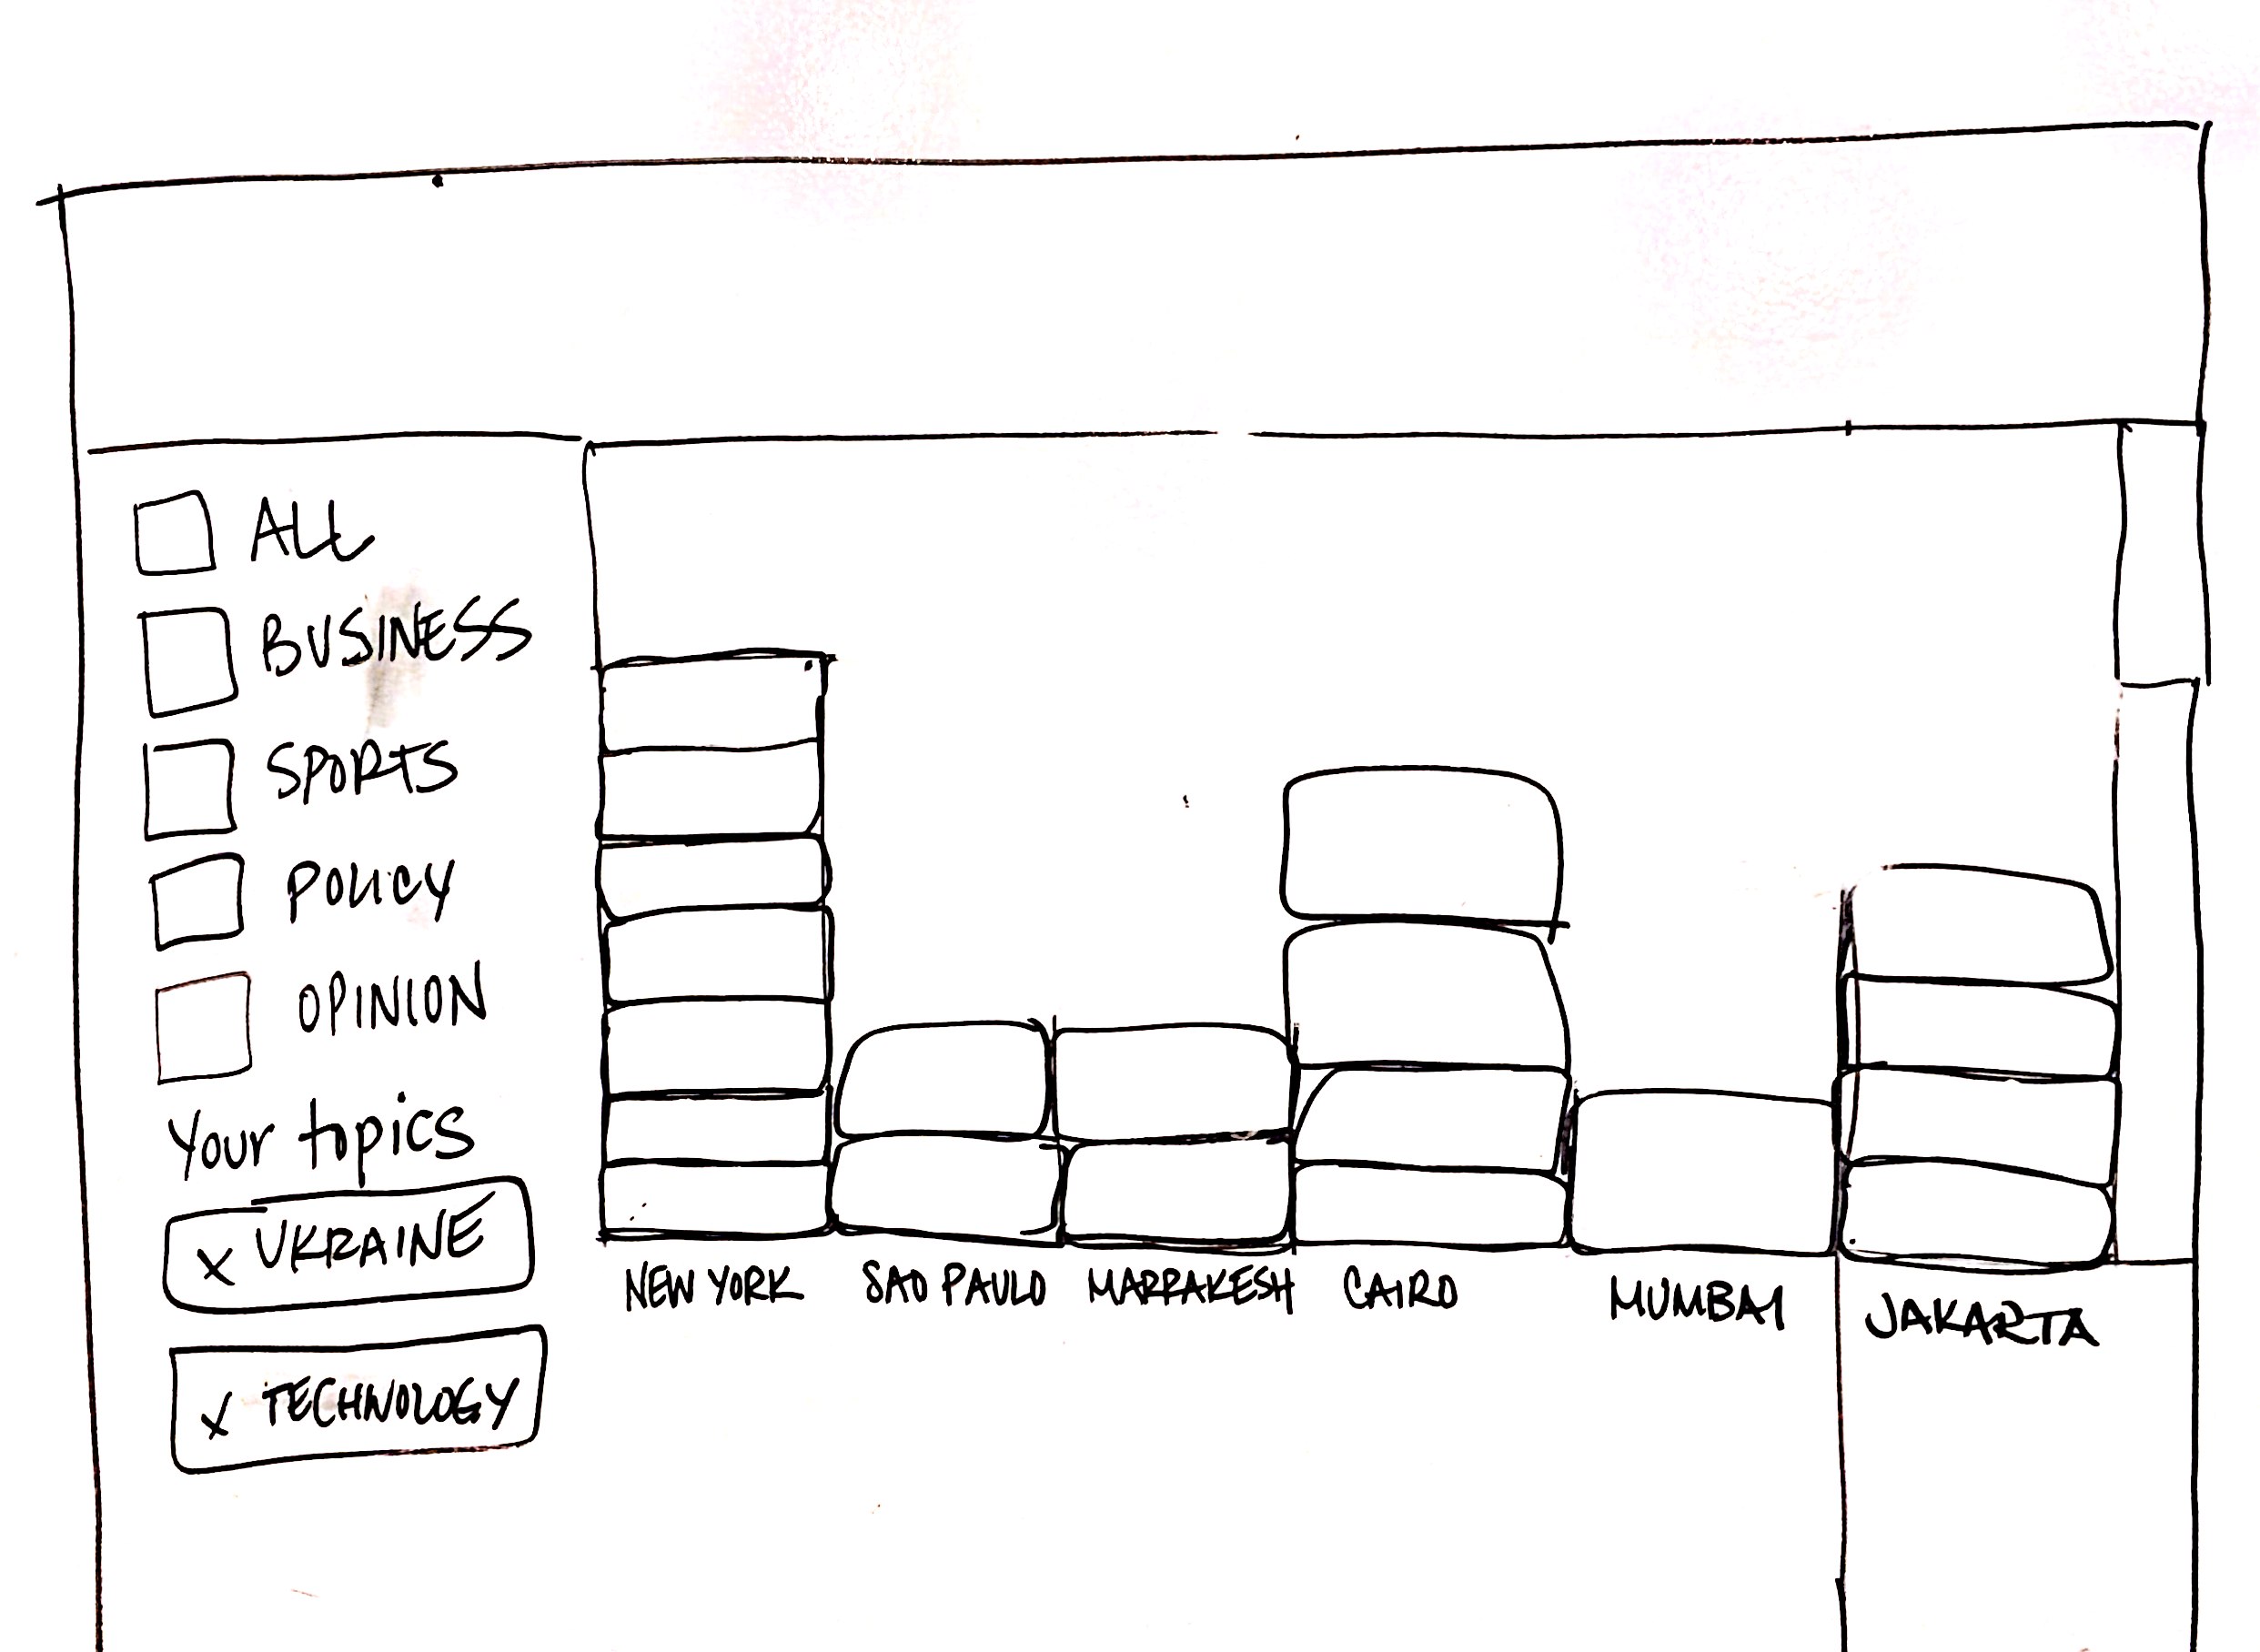 ALL
BUSINESS
SPORTS
POLICY
OPINION
Your topics
x UKRAINE
x TECHNOLOGY
NEW YORK
SAO PAULO
MARRAKESH
CAIRO
MUMBAI
JAKARTA